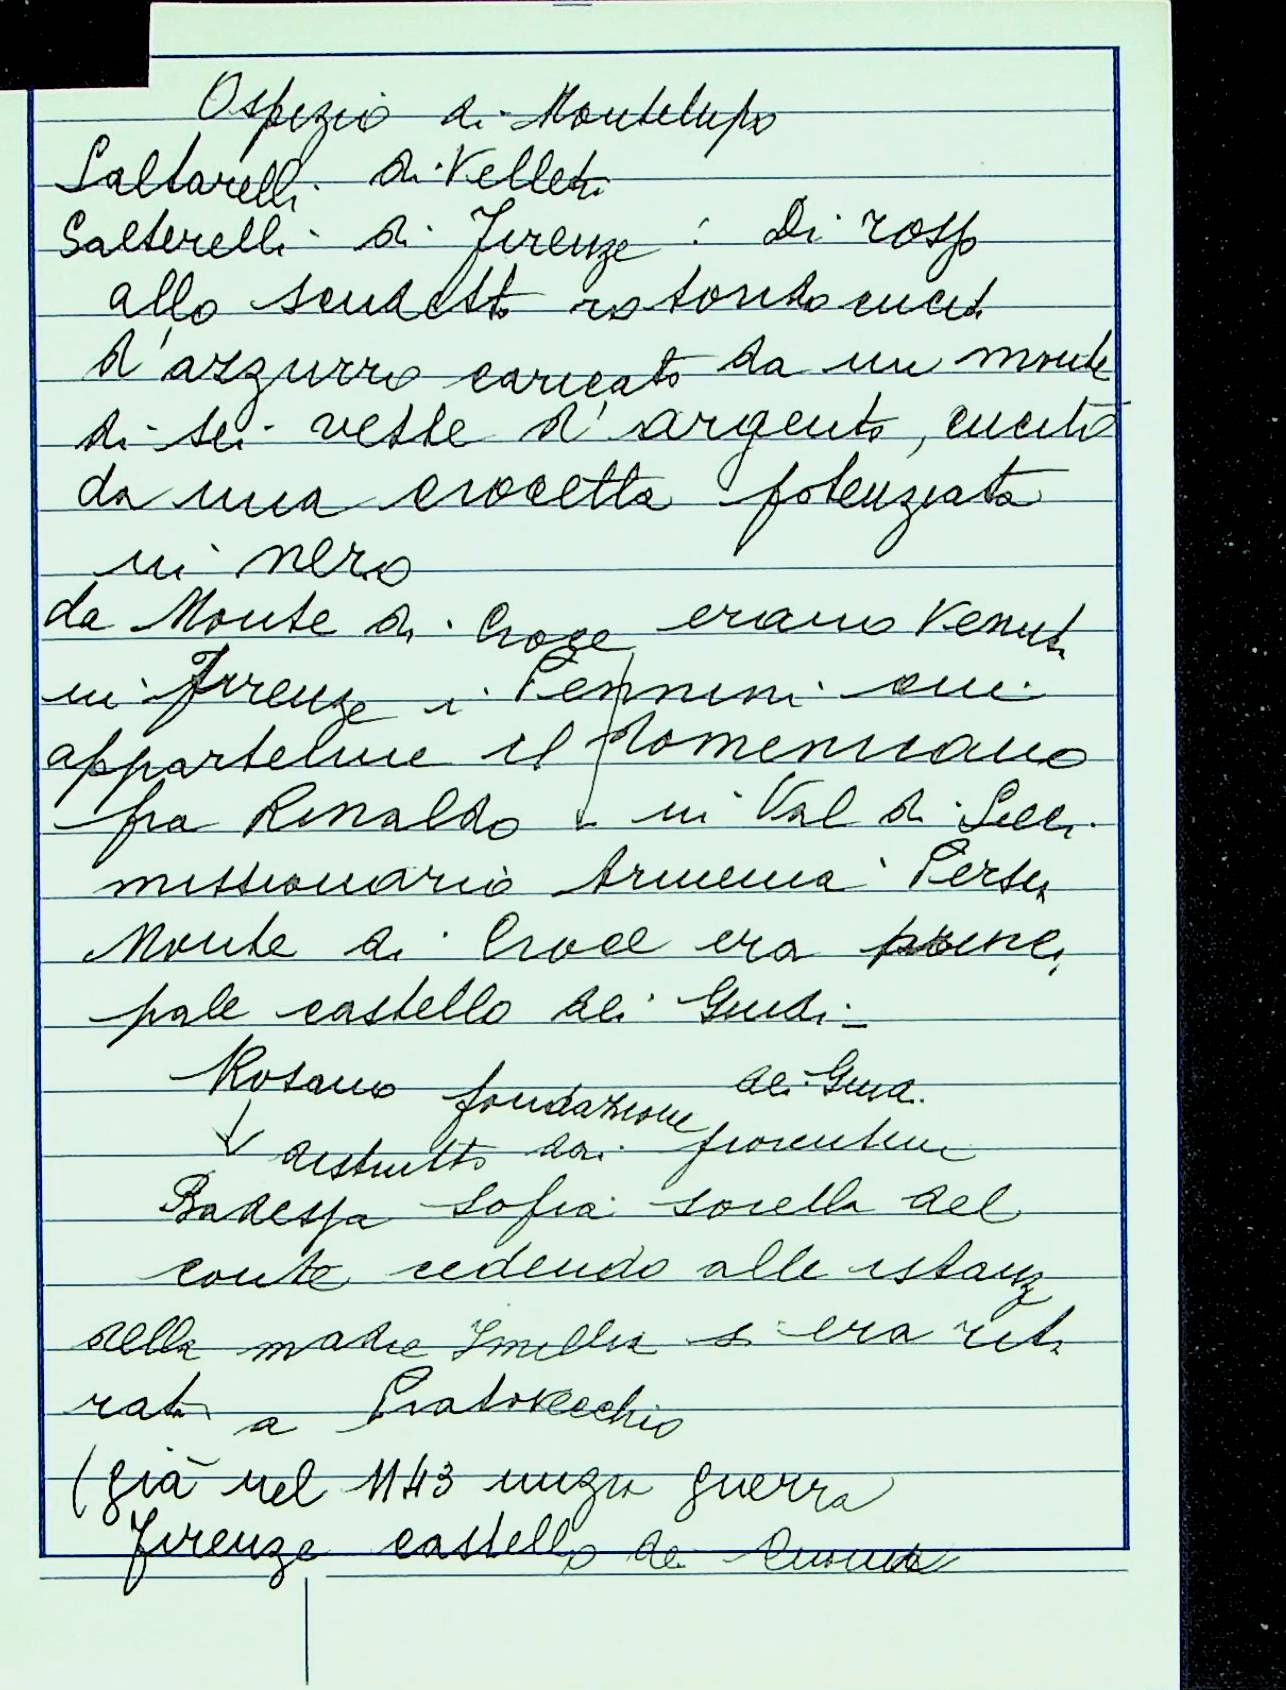 Ospizio di Montelupo
Saltarelli di Velletri
Salterelli di Firenze : Di rosso
allo scudetto rotondo cucito
d'azzurro caricato da un monte
di sei vette d'argento,
da una crocetta potenziata
in nero
da Monte di Croce erano venuti
in Firenze i Pennini cui
appartenne il domenicano
fra Rinaldo in Val di
missionario Armenia Persia
Monte di Croce era princi
pale castello dei Guidi -
Rosano fondazione dei Guidi
distrutto dai fiorentini
Badessa Sofia sorella del
conte cedendo alle istanz
della madre Imillia si era riti
rata a Pratovecchio
(già nel 1143 inizia guerra
Firenze castello di